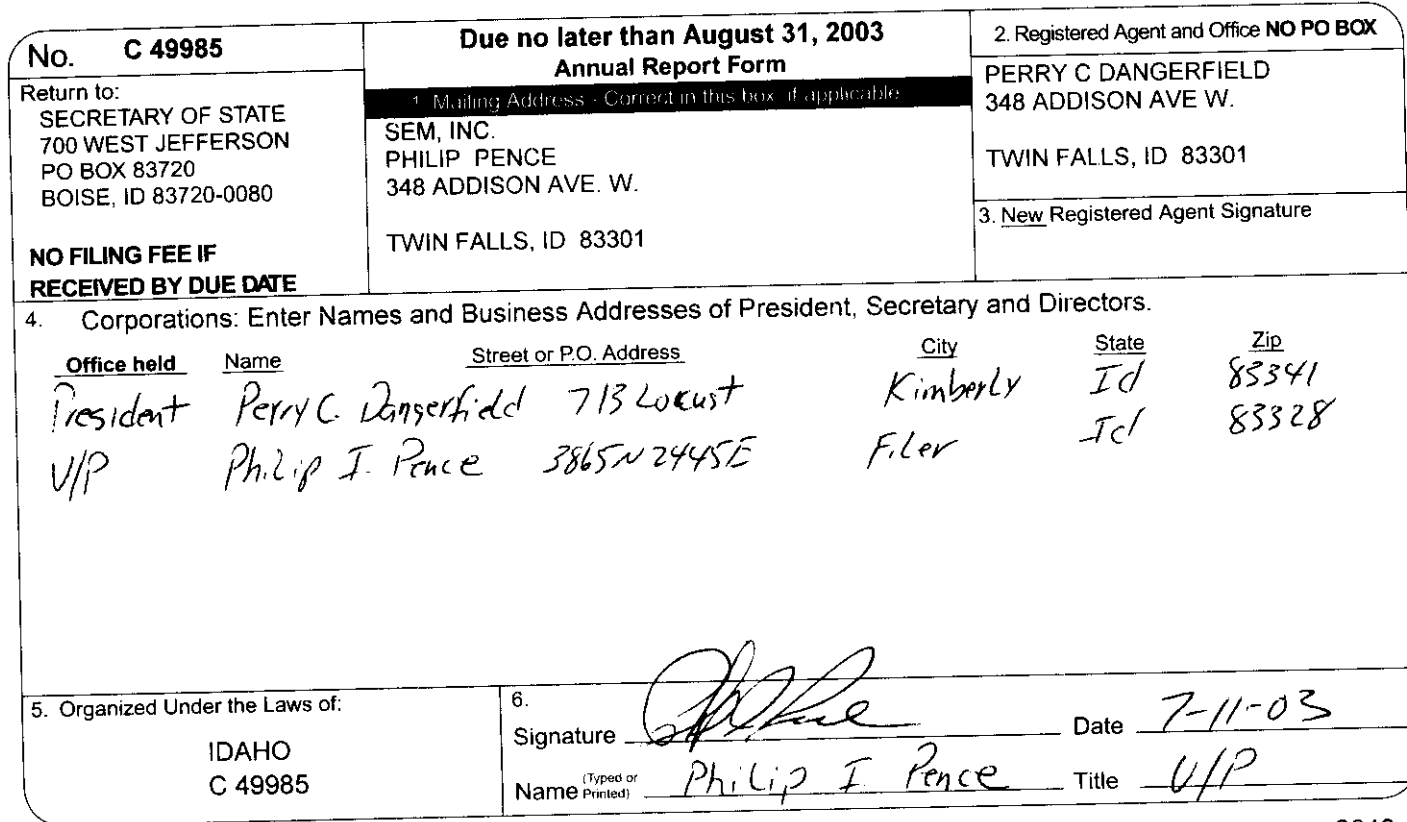 No. C 49985
Return to:
SECRETARY OF STATE
700 WEST JEFFERSON
PO BOX 83720
BOISE, ID 83720-0080
NO FILING FEE IF
RECEIVED BY DUE DATE
Due no later than August 31, 2003
Annual Report Form
1. Mailing Address - Correct in this box, if applicable
SEM, INC.
PHILIP PENCE
348 ADDISON AVE. W.
TWIN FALLS, ID 83301
2. Registered Agent and Office NO PO BOX
PERRY C DANGERFIELD
348 ADDISON AVE W.
TWIN FALLS, ID 83301
3. New Registered Agent Signature
4. Corporations: Enter Names and Business Addresses of President, Secretary and Directors.
Office held Name Street or P.O. Address City State Zip
President Perry C. Dangerfield 713 Locust Kimberly Id 83341
V/P Philip I. Pence 3865N 2445E Filer Id 83328
5. Organized Under the Laws of:
IDAHO
C 49985
6.
Signature Date 7-11-03
Name (Typed or Printed) Philip I. Pence Title V/P